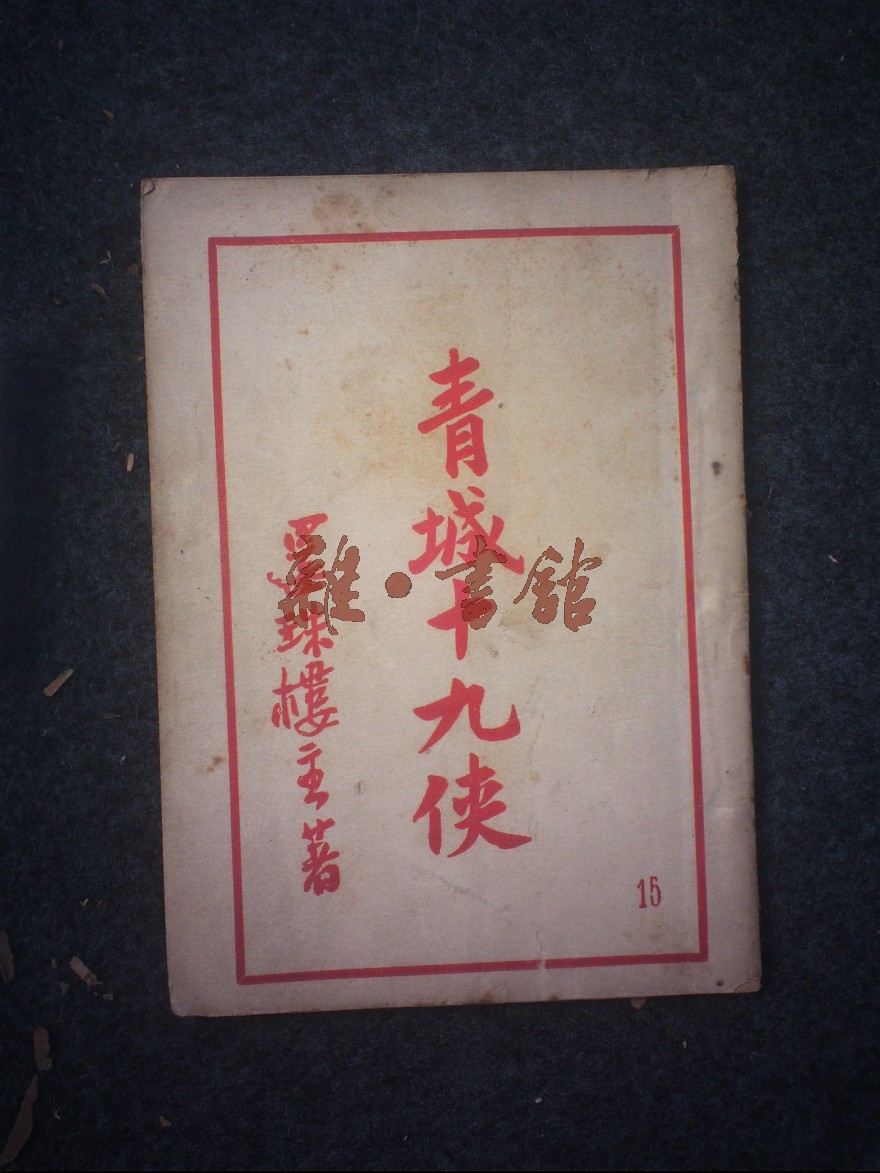 青城十九侠
還珠樓主著
15
雜·書館